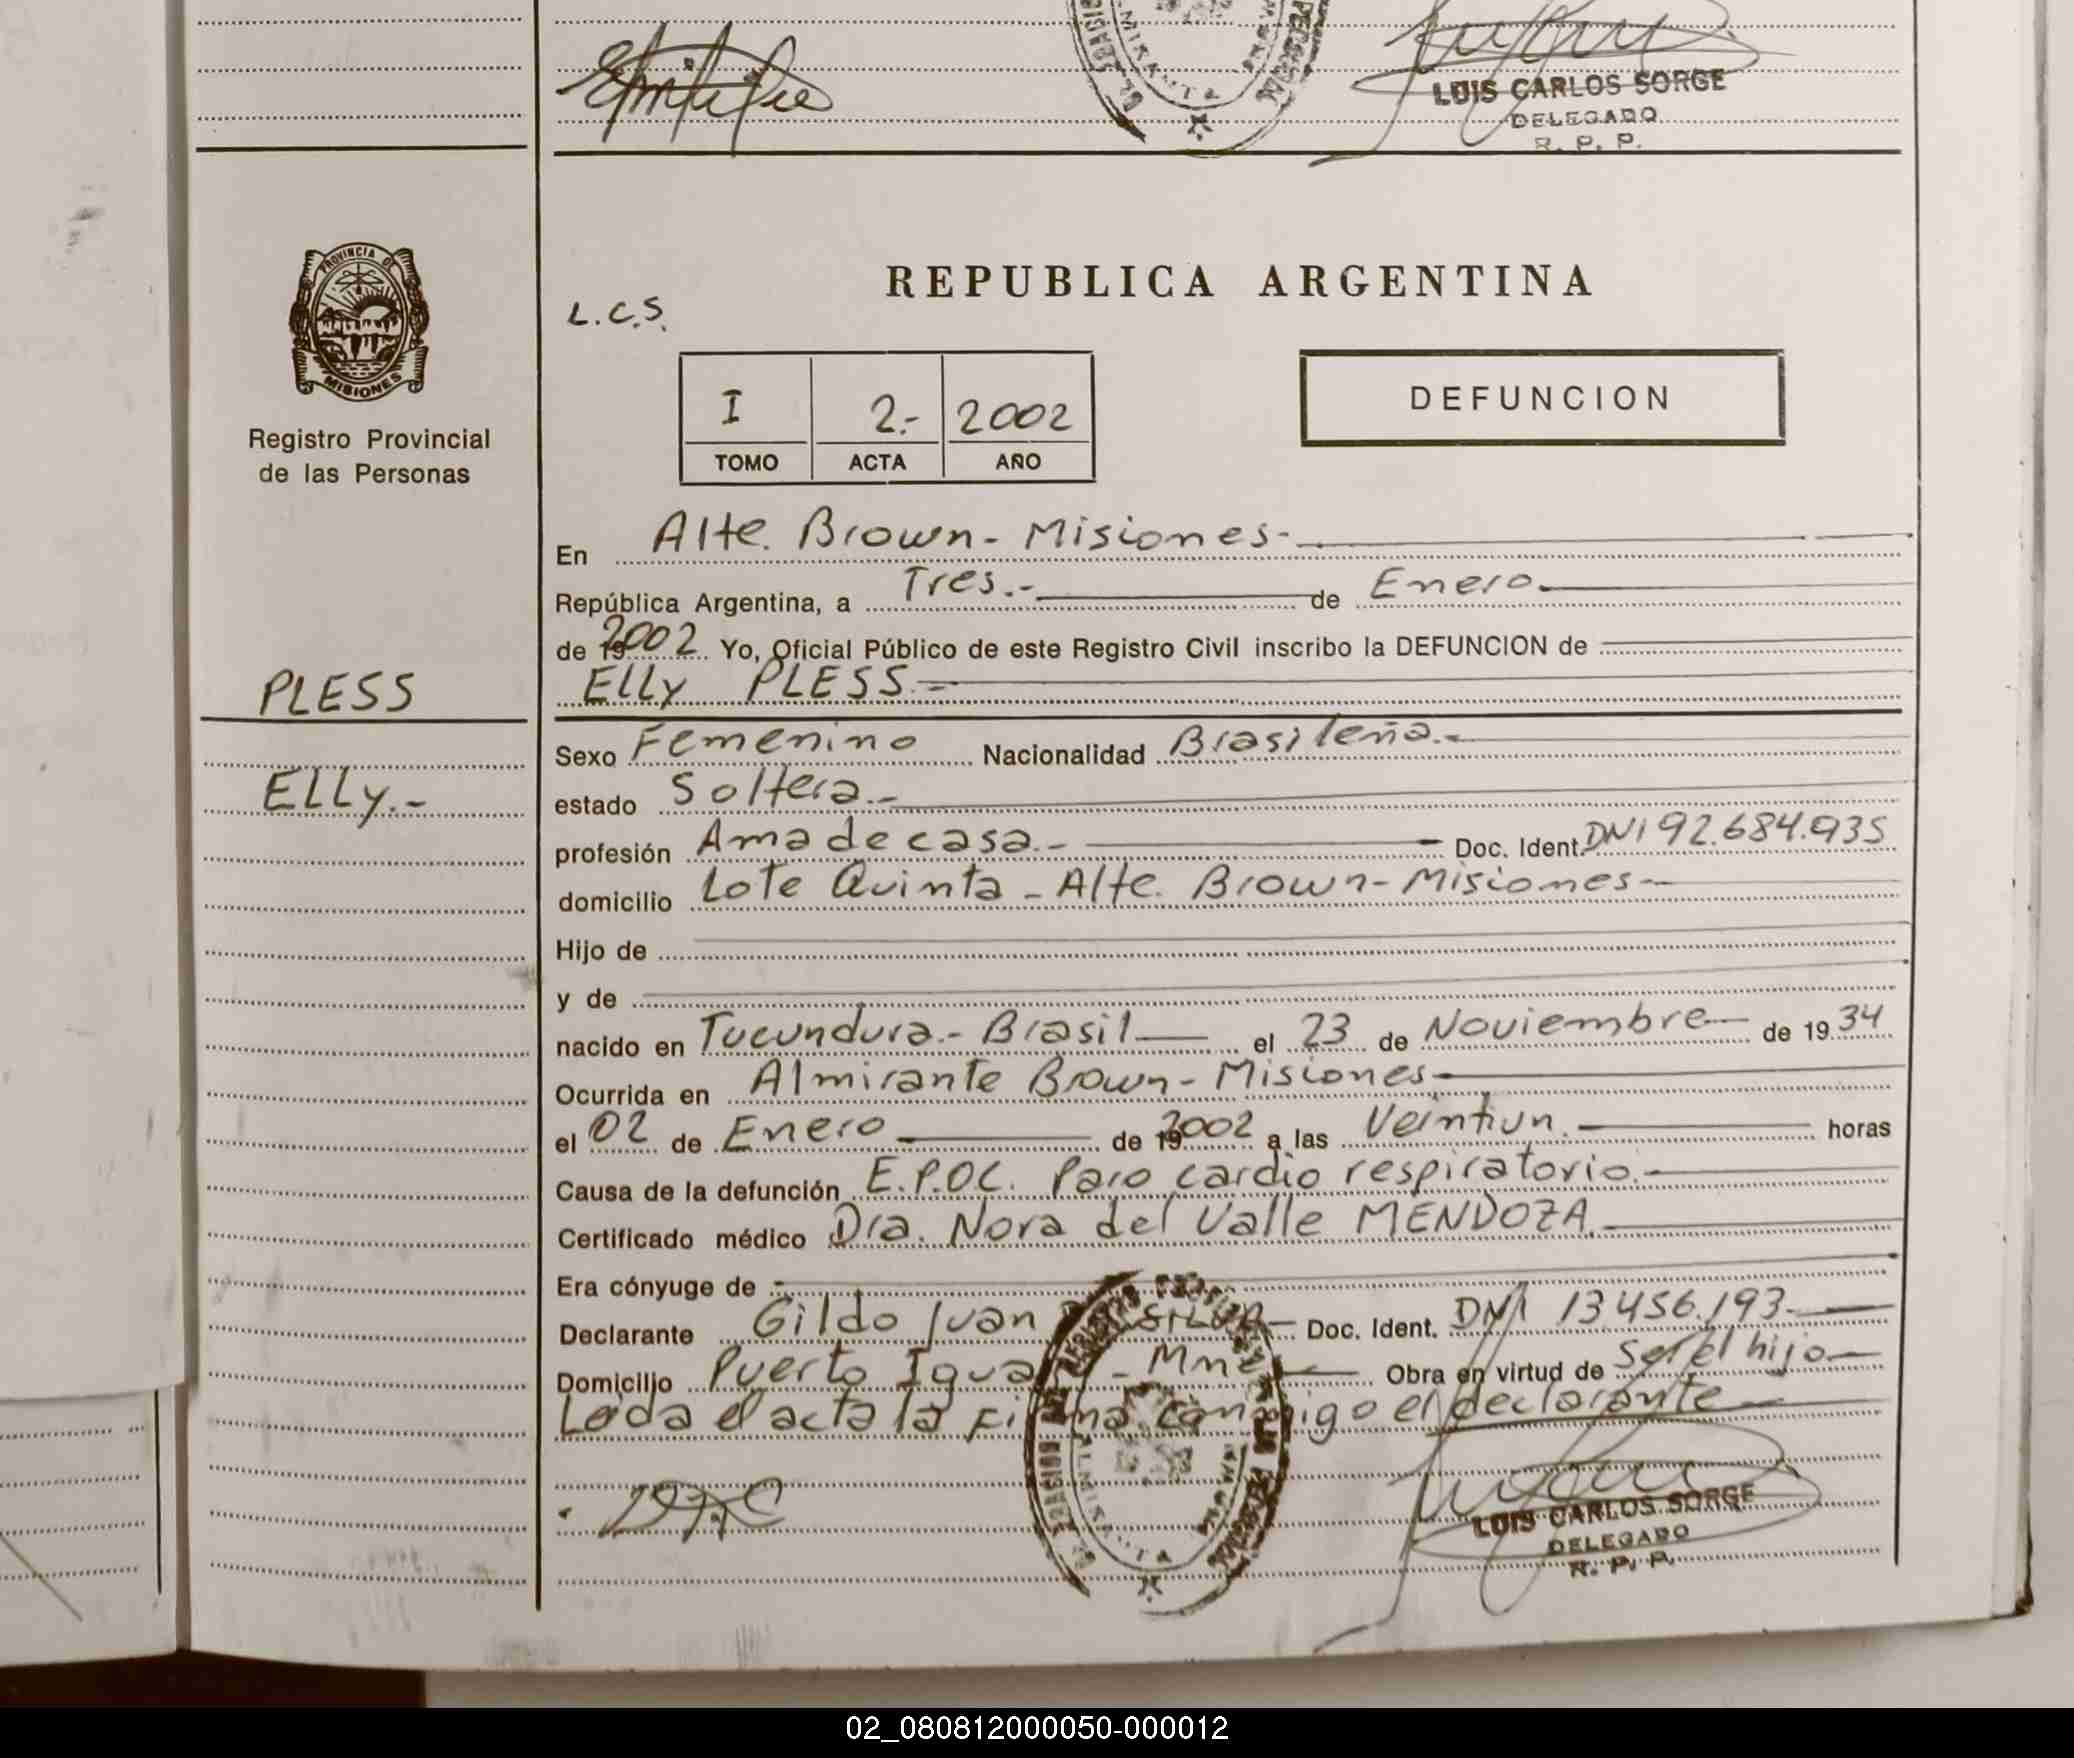 LUIS CARLOS SORGE
DELEGADO
R. P. P.
PROVINCIA DE
MISIONES
Registro Provincial
de las Personas
REPUBLICA ARGENTINA
L.C.S.
I 2.- 2002
TOMO ACTA AÑO
DEFUNCION
En Alte. Brown - Misiones -
República Argentina, a Tres.- de Enero
de 2002 Yo, Oficial Público de este Registro Civil inscribo la DEFUNCION de
PLESS
ELLy PLESS.-
Sexo Femenino Nacionalidad Brasileña.-
ELLy.-
estado Soltera.-
profesión Ama de casa.- Doc. Ident. DNI 92.684.935
domicilio Lote Quinta - Alte. Brown - Misiones -
Hijo de
y de
nacido en Tucundura.- Brasil el 23 de Noviembre de 1934
Ocurrida en Almirante Brown - Misiones
el 02 de Enero de 2002 a las Veintiun. horas
Causa de la defunción E.P.OC. Paro cardio respiratorio.-
Certificado médico Dra. Nora del Valle MENDOZA.
Era cónyuge de
Declarante Gildo Juan Doc. Ident. DNI 13.456.193.
Domicilio Puerto - Mnes Obra en virtud de ser el hijo
Leida el acta la firma conmigo el declarante
LUIS CARLOS SORGE
DELEGADO
R. P. P.
02_080812000050-000012